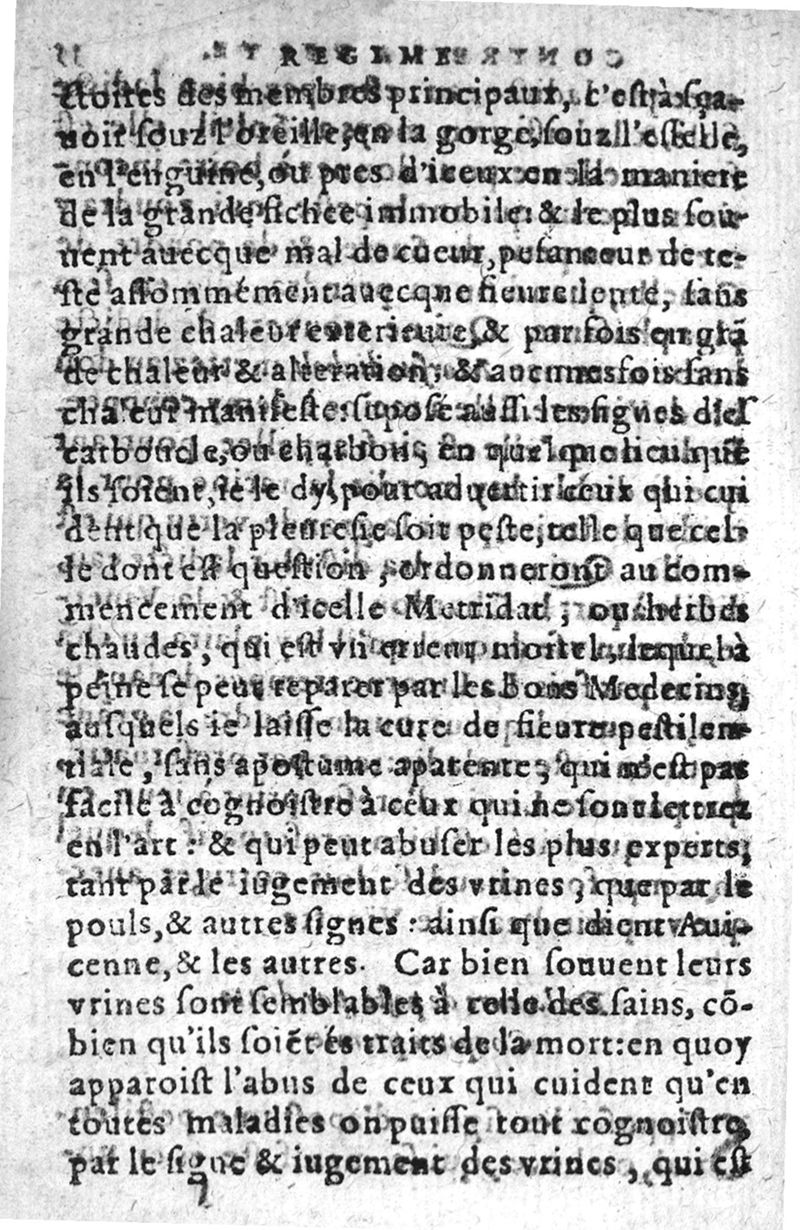 REGIME
étoires des membres principaux, c'est à sça-
uoir souz l'oreille, en la gorge, souz l'esselle,
en l'enguine, ou pres d'iceux en la maniere
de la grande fichee immobile: & le plus sou-
uent auecque mal de cueur, pesanteur de te-
ste assommément auecque fieure lente, sans
grande chaleur exterieure, & par fois en grã
de chaleur & alteration, & aucunes fois sans
chaleur manifeste: supose aussi les signes diel
carboucle, ou charbon, en quelque lieu que
ils soient, ie le dy, pour aduertir ceux qui cui
dent que la pleuresie soit peste, telle que cel-
le dont est question, & donneront au com-
mencement d'icelle Metridat, ou herbes
chaudes, qui est vn erreur mortel, lequel à
peine se peut reparer par les bons Medecins,
ausquels ie laisse la cure de fieure pestilen-
tiale, sans apostume aparente, qui n'est pas
facile à cognoistre à ceux qui ne sont lettrez
en l'art: & qui peut abuser les plus experts,
tant par le iugement des vrines, que par le
pouls, & autres signes: ainsi que dient Aui-
cenne, & les autres. Car bien souuent leurs
vrines sont semblables à celle des sains, cõ-
bien qu'ils soiẽt és traits de la mort: en quoy
apparoist l'abus de ceux qui cuident qu'en
toutes maladies on puisse tout cognoistre,
par le signe & iugement des vrines, qui est